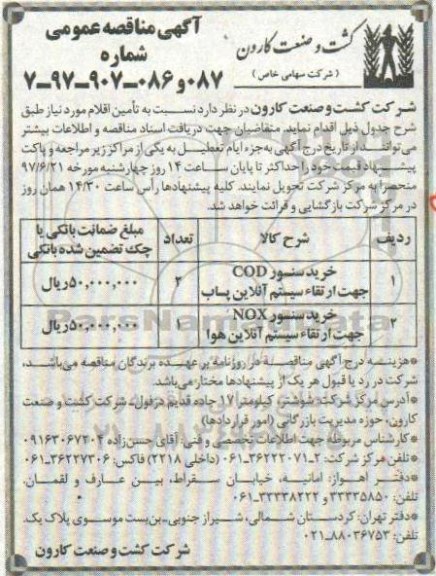 آگهی مناقصه عمومی
شماره
۰۸۷ و ۰۸۶-۹۰۷-۹۷-۷
کشت و صنعت کارون
(شرکت سهامی خاص)
شرکت کشت و صنعت کارون در نظر دارد نسبت به تأمین اقلام مورد نیاز طبق
شرح جدول ذیل اقدام نماید. متقاضیان جهت دریافت اسناد مناقصه و اطلاعات بیشتر
می‌توانند از تاریخ درج آگهی به‌جزء ایام تعطیل به یکی از مراکز زیر مراجعه و پاکت
پیشنهاد قیمت خود را حداکثر تا پایان ساعت ۱۴ روز چهارشنبه مورخه ۹۷/۶/۲۱
منحصراً به مرکز شرکت تحویل نمایند. کلیه پیشنهادها رأس ساعت ۱۴/۳۰ همان روز
در مرکز شرکت بازگشایی و قرائت خواهد شد.
ردیف شرح کالا تعداد مبلغ ضمانت بانکی یا
چک تضمین شده بانکی
۱ خرید سنسور COD
جهت ارتقاء سیستم آنلاین پساب ۲ ۵۰,۰۰۰,۰۰۰ ریال
۲ خرید سنسور NOX
جهت ارتقاء سیستم آنلاین هوا ۱ ۵۰,۰۰۰,۰۰۰ ریال
*هزینه درج آگهی مناقصه در روزنامه بر عهده برندگان مناقصه می‌باشد،
شرکت در رد یا قبول هر یک از پیشنهادها مختار می‌باشد.
*آدرس مرکز شرکت: شوشتر، کیلومتر ۱۷ جاده قدیم دزفول، شرکت کشت و صنعت
کارون، حوزه مدیریت بازرگانی (امور قراردادها)
*کارشناس مربوطه جهت اطلاعات تخصصی و فنی: آقای حسن‌زاده ۰۹۱۶۳۰۶۷۳۰۴
*تلفن مرکز شرکت: ۲-۳۶۲۲۲۰۷۱-۰۶۱ (داخلی ۲۲۱۸) فاکس: ۳۶۲۳۷۳۰۶-۰۶۱
*دفتر اهواز: امانیه، خیابان سقراط، بین عارف و لقمان.
تلفن: ۳۳۳۳۵۸۵۰ و ۳۳۳۳۸۲۲۲-۰۶۱
*دفتر تهران: کردستان شمالی، شیراز جنوبی-بن‌بست موسوی پلاک یک.
تلفن: ۸۸۰۳۶۷۵۳-۰۲۱
شرکت کشت و صنعت کارون